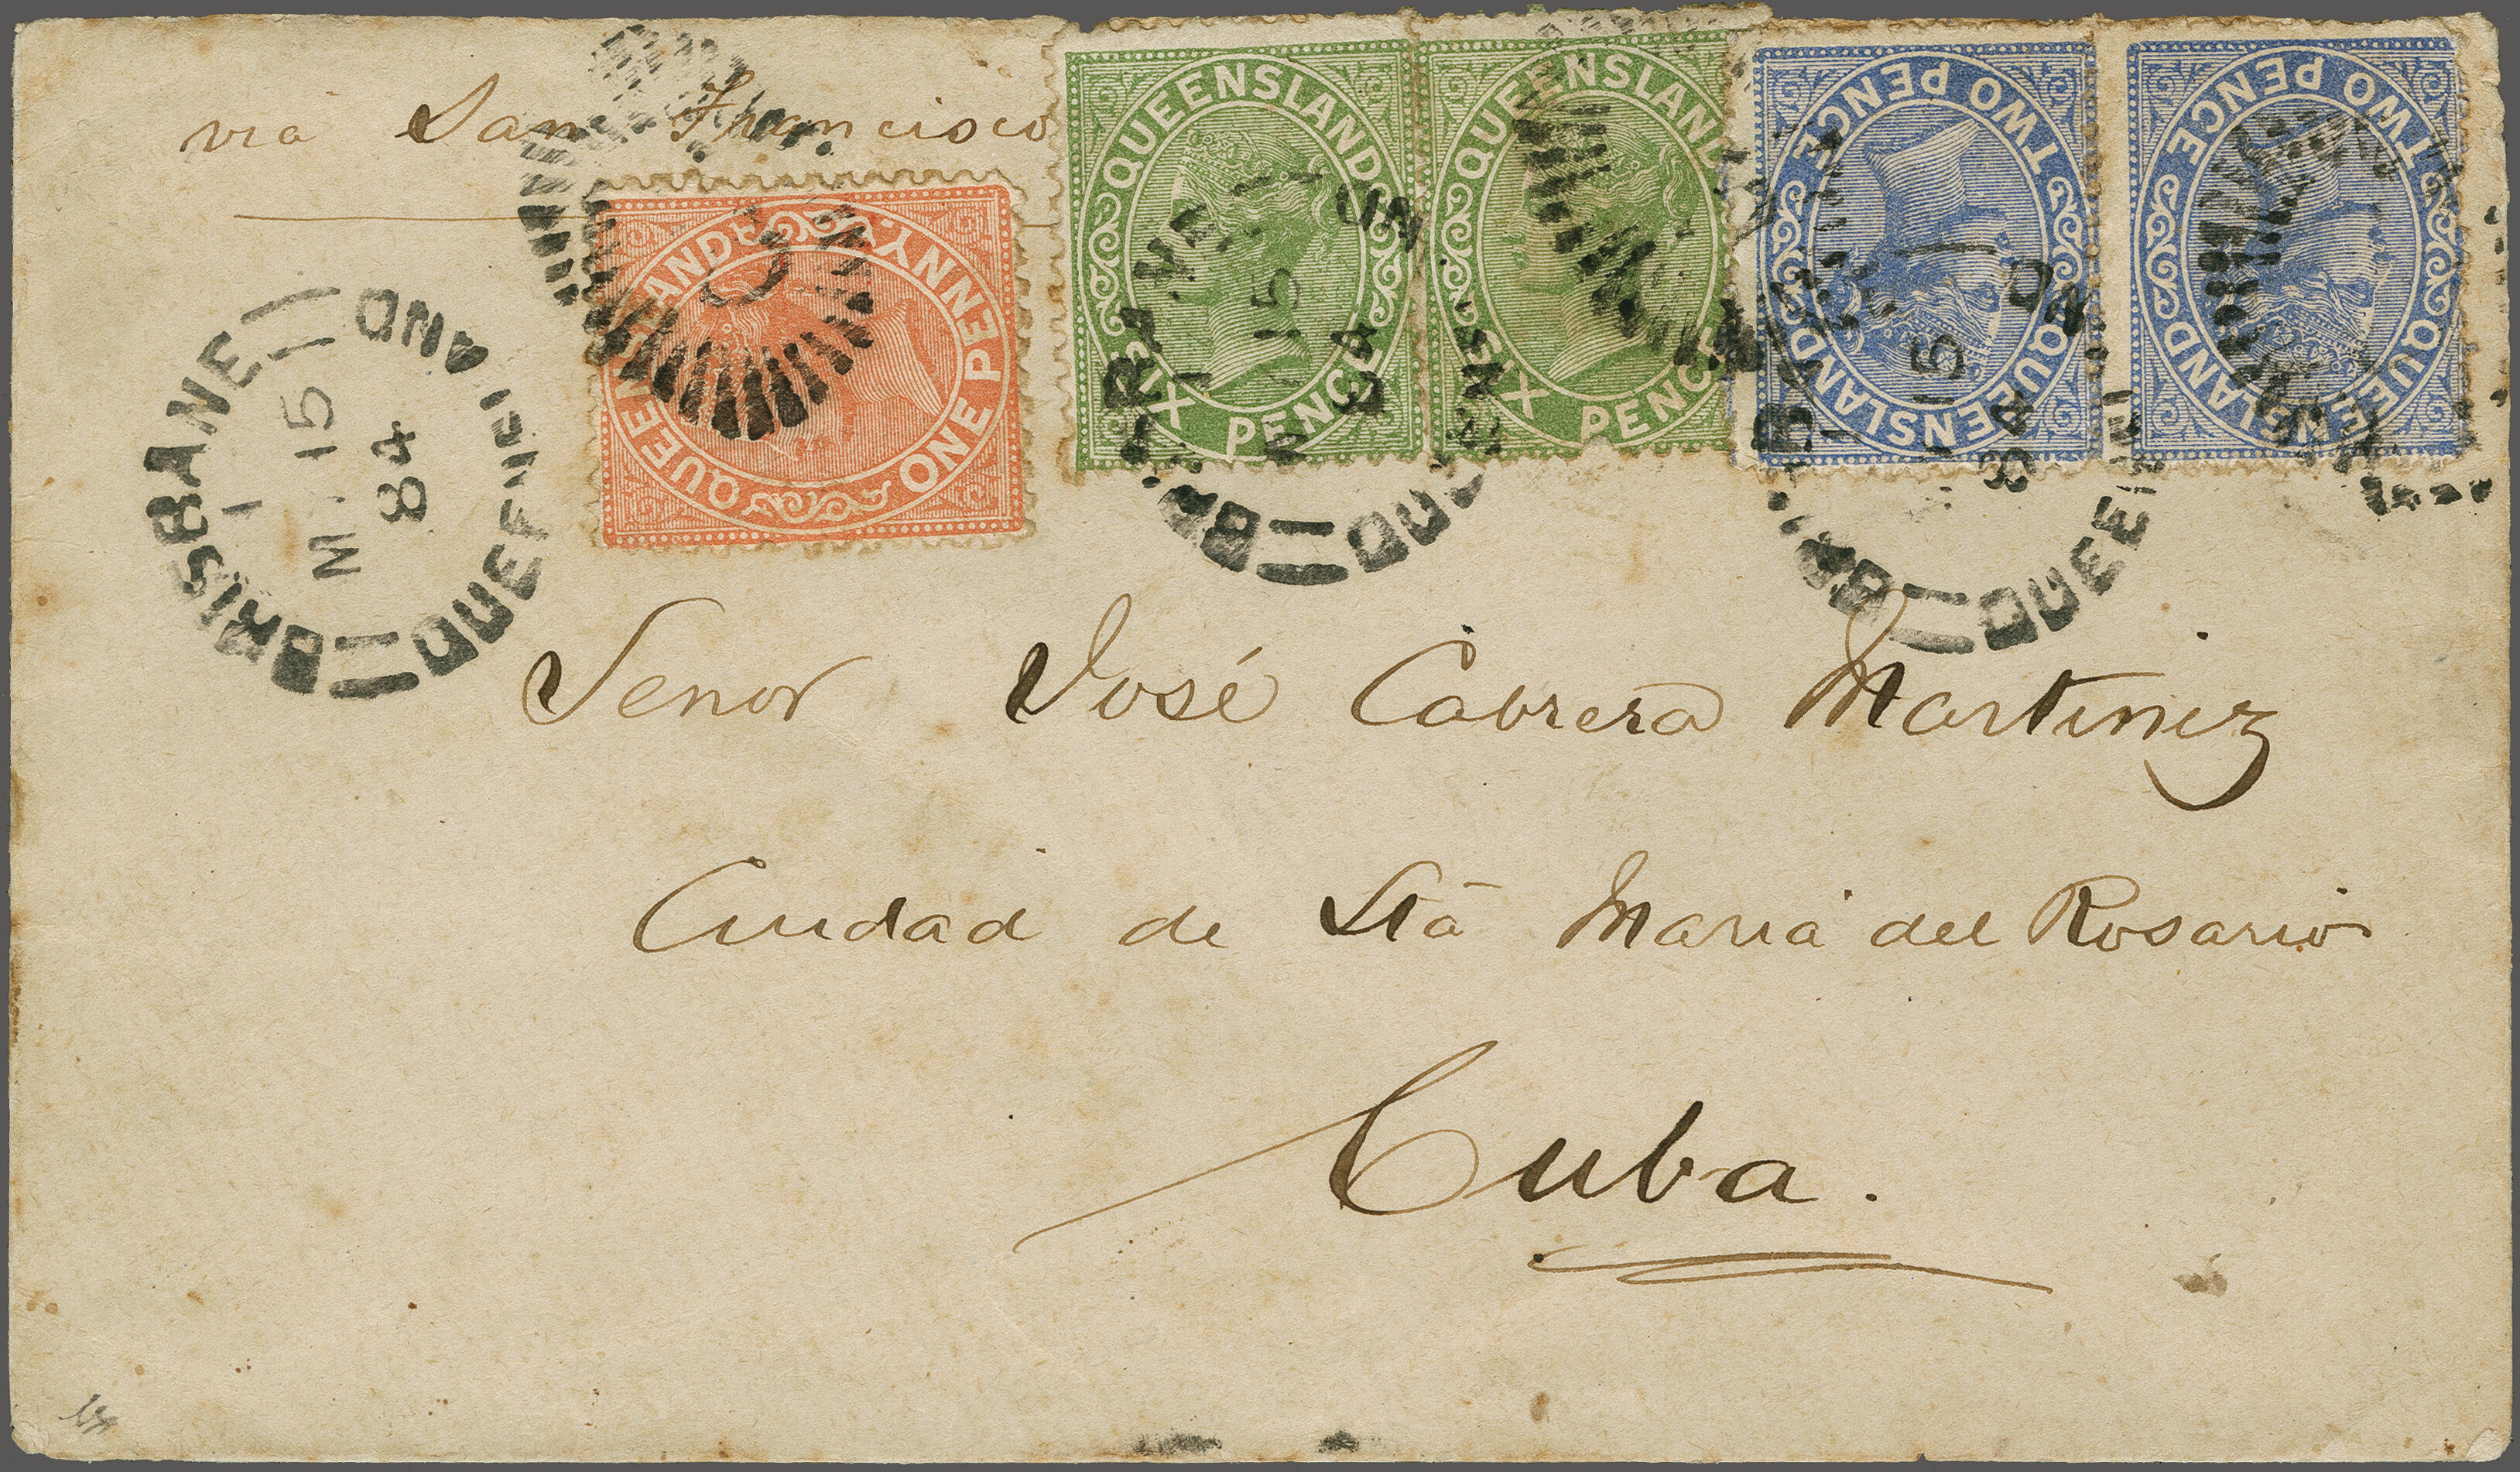 via San Francisco
QUEENSLAND
SIX PENCE
QUEENSLAND
SIX PENCE
QUEENSLAND
TWO PENCE
QUEENSLAND
TWO PENCE
QUEENSLAND
ONE PENNY
BRISBANE
15
84
QUEENSLAND
15
84
15
84
Senor José Cabrera Martinez
Ciudad de Sta Maria del Rosario
Cuba.